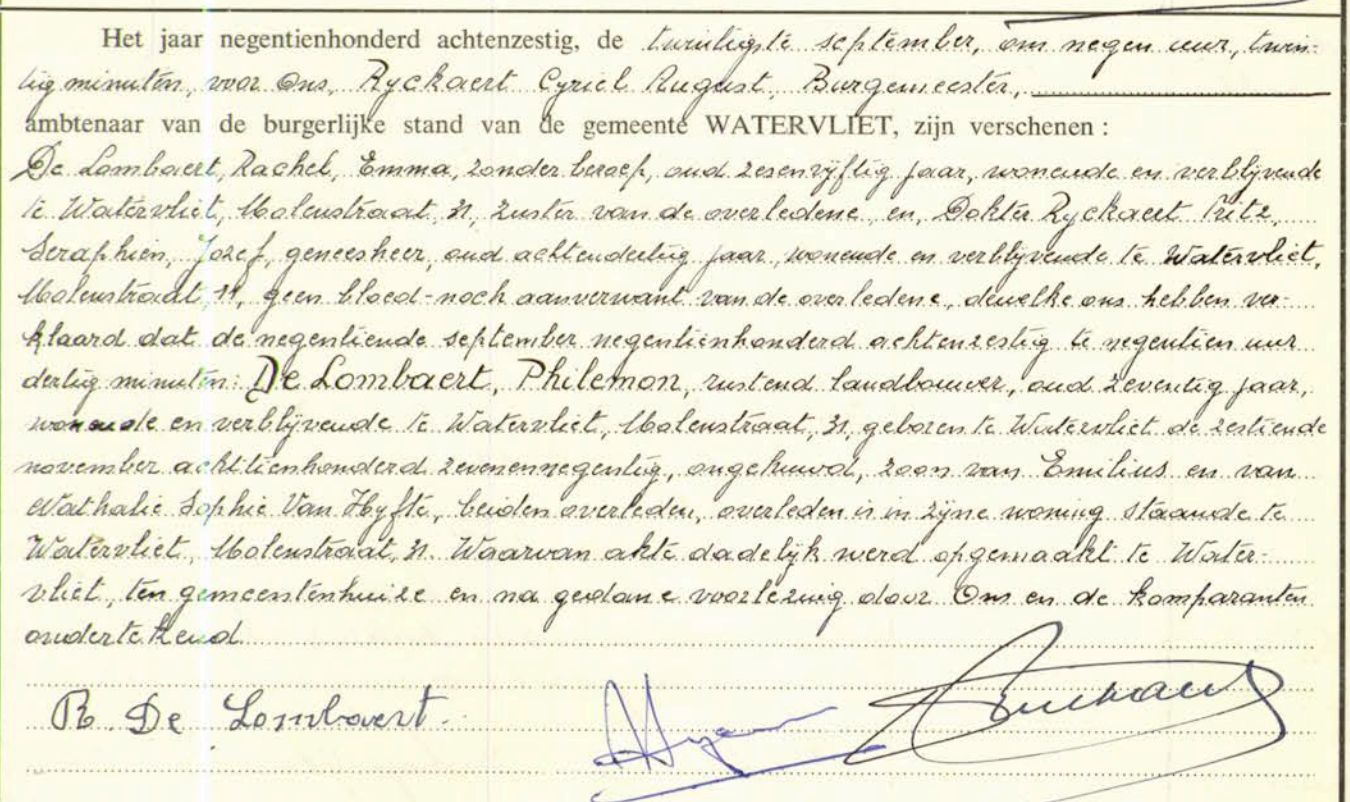 Het jaar negentienhonderd achtenzestig, de twintigste september, om negen uur, twin-
tig minuten, voor Ons, Ryckaert Cyriel August, Burgemeester,
ambtenaar van de burgerlijke stand van de gemeente WATERVLIET, zijn verschenen :
De Lombaert, Rachel, Emma, zonder beroep, oud zesenvijftig jaar, wonende en verblijvende
te Watervliet, Molenstraat, 31, zuster van de overledene, en, Dokter Ryckaert Fritz,
Seraphien, Jozef, geneesheer, oud achtendertig jaar, wonende en verblijvende te Watervliet,
Molenstraat, 11, geen bloed-noch aanverwant van de overledene, dewelke ons hebben ver-
klaard dat de negentiende september negentienhonderd achtenzestig te negentien uur
dertig minuten: De Lombaert, Philemon, rustend landbouwer, oud zeventig jaar,
wonende en verblijvende te Watervliet, Molenstraat, 31, geboren te Watervliet de zestiende
november achttienhonderd zevenennegentig, ongehuwd, zoon van Emilius en van
Nathalie Sophie Van Hyfte, beiden overleden, overleden is in zijne woning staande te
Watervliet, Molenstraat, 31. Waarvan akte dadelijk werd opgemaakt te Water-
vliet, ten gemeentenhuize en na gedane voorlezing door Ons en de komparanten
ondertekend.
R. De Lombaert.